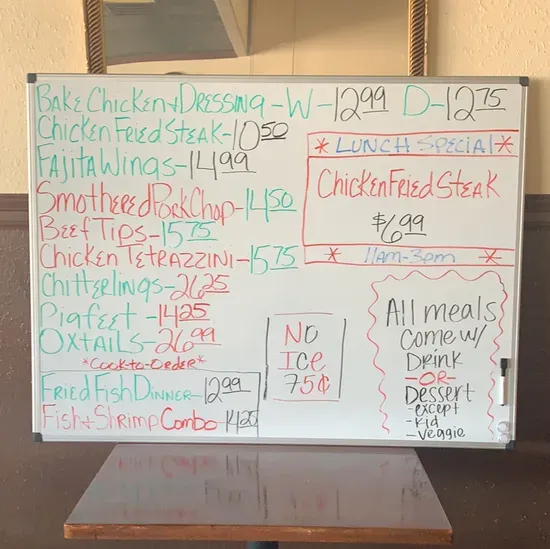 Bake Chicken + Dressing - W - 12.99 D - 12.75
Chicken Fried Steak - 10.50
Fajita Wings - 14.99
Smothered Pork Chop - 14.50
Beef Tips - 15.75
Chicken Tetrazzini - 15.75
Chitterlings - 26.25
Pigfeet - 14.25
Oxtails - 26.99
*Cook-to-Order*
Fried Fish Dinner - 12.99
Fish + Shrimp Combo - 14.25
* Lunch Special *
Chicken Fried Steak
$6.99
* 11am-3pm *
No
Ice
75¢
All meals
Come w/
Drink
-OR-
Dessert
-except
-kid
-veggie